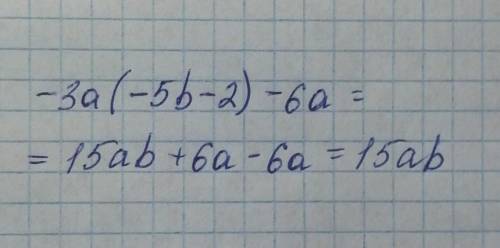 -3a(-5b-2)-6a=
=15ab+6a-6a=15ab